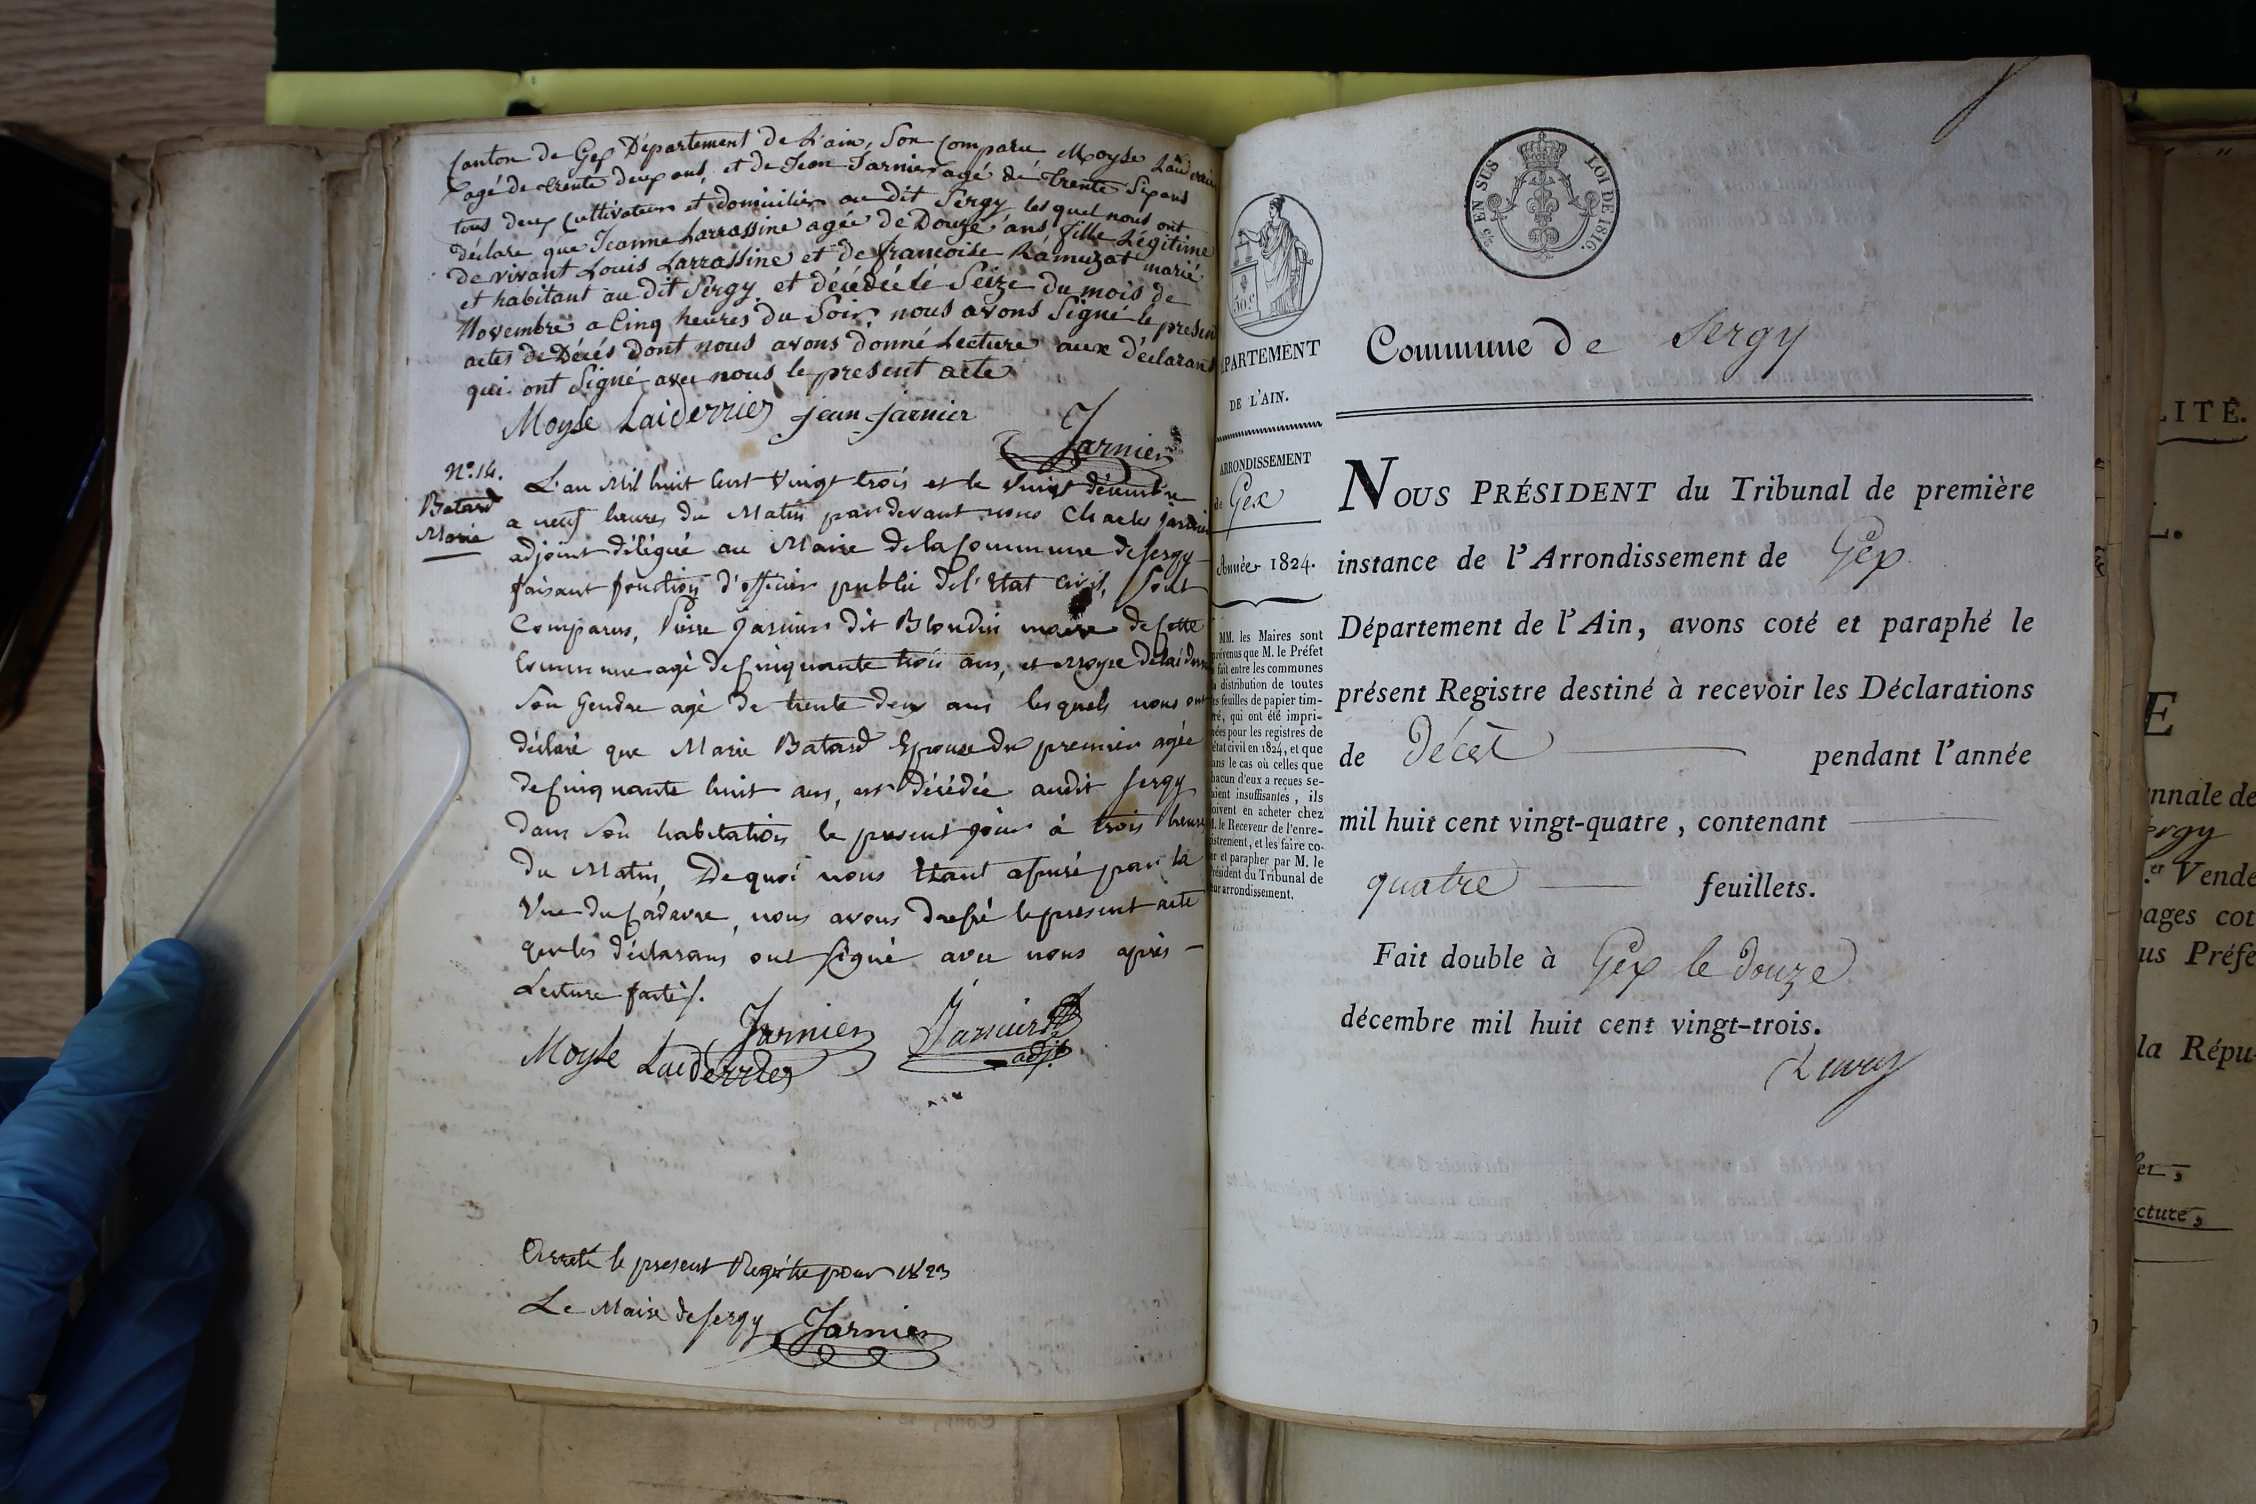 Canton de Gex Département de L'ain, Son Comparu Moyse
agé de trente deux ans, et de Jean Jarnier agé de trente Six ans
tous deux Cultivateur et domicilier au dit Sergy les quel nous ont
déclare que Jeanne Larrassine agée de Douze ans, fille Légitime
de vivant Louis Larrassine et de francoise Ramuzat marié
et habitant au dit Sergy et décédé le Seize du mois de
Novembre a Cinq heures du Soir, nous avons Signé le present
actes de Décés dont nous avons donné Lecture aux déclarant
qui ont Signé avec nous le present acte
Moyse Laiderrier jean jarnier
Jarnier
N.º 14.
Batard
Marie
L'an Mil huit Cent Vingt trois et le Vingt décembre
a neuf heures du Matin pardevant nous Charles jarnier
adjoint délégué au Maire de la Commune de Sergy
faisant fonction d'officier public de l'Etat Civil, Sont
Comparus, Pierre Jarnier dit Blondin maire de Cette
Commune agé de Cinquante trois ans, et moyse
Son Gendre agé de trente deux ans lesquels nous ont
déclaré que Marie Batard Epouse du premier agée
de Cinquante huit ans, est Décédée audit Sergy
dans Son habitation le present jour à trois heures
du Matin, De quoi nous Etant assuré par la
Vue du Cadavre, nous avons dressé le present acte
que les déclarans ont Signé avec nous après
Lecture faite/.
Jarnier Jarnier
Moyse Laiderrier adj.t
Arreté le present Registre pour 1823
Le Maire de Sergy Jarnier
5/c EN SUS LOI DE 1816.
50 c
DÉPARTEMENT
DE L'AIN.
ARRONDISSEMENT
de Gex
Année 1824.
MM. les Maires sont
prévenus que M. le Préfet
a fait entre les communes
la distribution de toutes
les feuilles de papier tim-
bré, qui ont été impri-
mées pour les registres de
l'état civil en 1824, et que
dans le cas où celles que
chacun d'eux a reçues se-
raient insuffisantes, ils
doivent en acheter chez
M. le Receveur de l'enre-
gistrement, et les faire co-
ter et parapher par M. le
Président du Tribunal de
leur arrondissement.
Commune de Sergy
NOUS PRÉSIDENT du Tribunal de première
instance de l'Arrondissement de Gex
Département de l'Ain, avons coté et paraphé le
présent Registre destiné à recevoir les Déclarations
de Décet pendant l'année
mil huit cent vingt-quatre, contenant
quatre feuillets.
Fait double à Gex le douze
décembre mil huit cent vingt-trois.
LITÉ.
E
nnale de
ergy
er Vende
pages cot
us Préfe
la Répu-
cture,